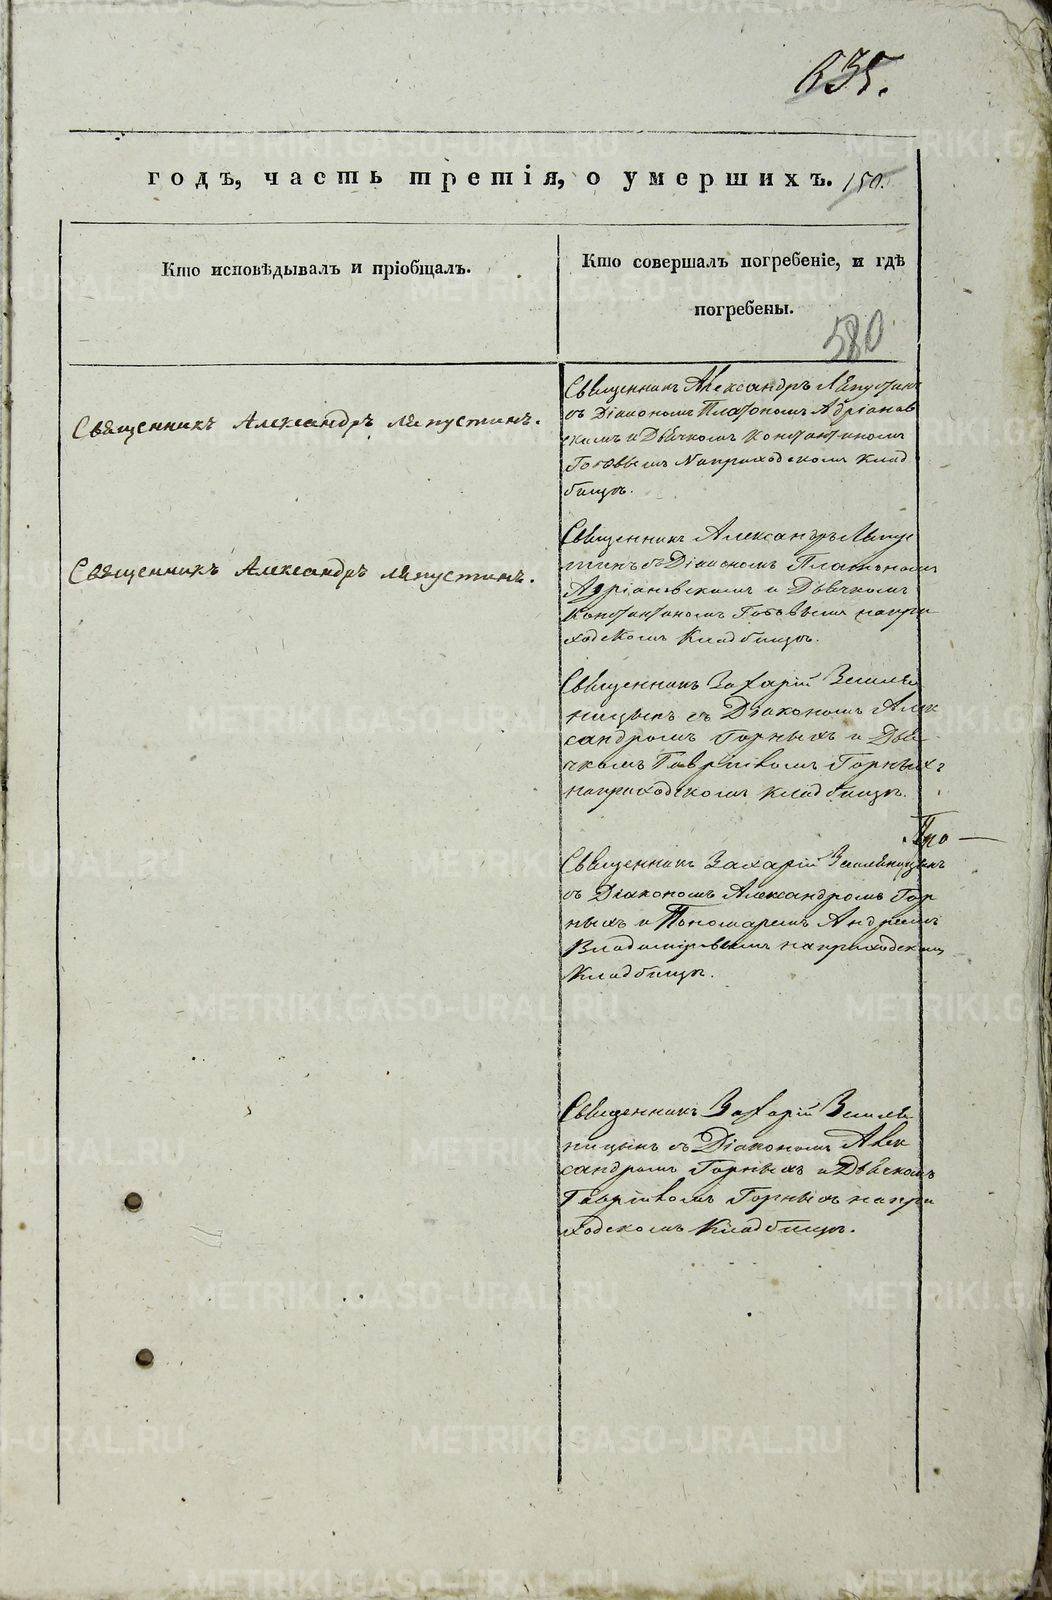 635.
годъ, часть третія, о умершихъ. 150.
Кто исповѣдывалъ и пріобщалъ.
Кто совершалъ погребеніе, и гдѣ
погребены.
580
Священникъ Александръ Ляпустинъ.
Священникъ Александръ Ляпустинъ
съ Діакономъ Платономъ Адріанов
скимъ и Дьячкомъ Константиномъ
Наприходскомъ Клад
бищѣ.
Священникъ Александръ Ляпустинъ.
Священникъ Александръ Ляпус
тинъ съ Діакономъ Платономъ
Адріановскимъ и Дьячкомъ
Константиномъ напри
ходскомъ Кладбищѣ.
Священникъ Захарій Землѣ
ницынъ съ Діакономъ Алек
сандромъ Горныхъ и Дьяч
комъ Горныхъ
наприходскомъ кладбищѣ.
Священникъ Захарій Землѣницынъ
съ Діакономъ Александромъ Гор
ныхъ и Пономаремъ Андреемъ
наприходскомъ
Кладбищѣ.
Священникъ Захарій Землѣ
ницынъ съ Діакономъ Алек
сандромъ Горныхъ и Дьячкомъ
Горныхъ напри
ходскомъ Кладбищѣ.
METRIKI.GASO-URAL.RU